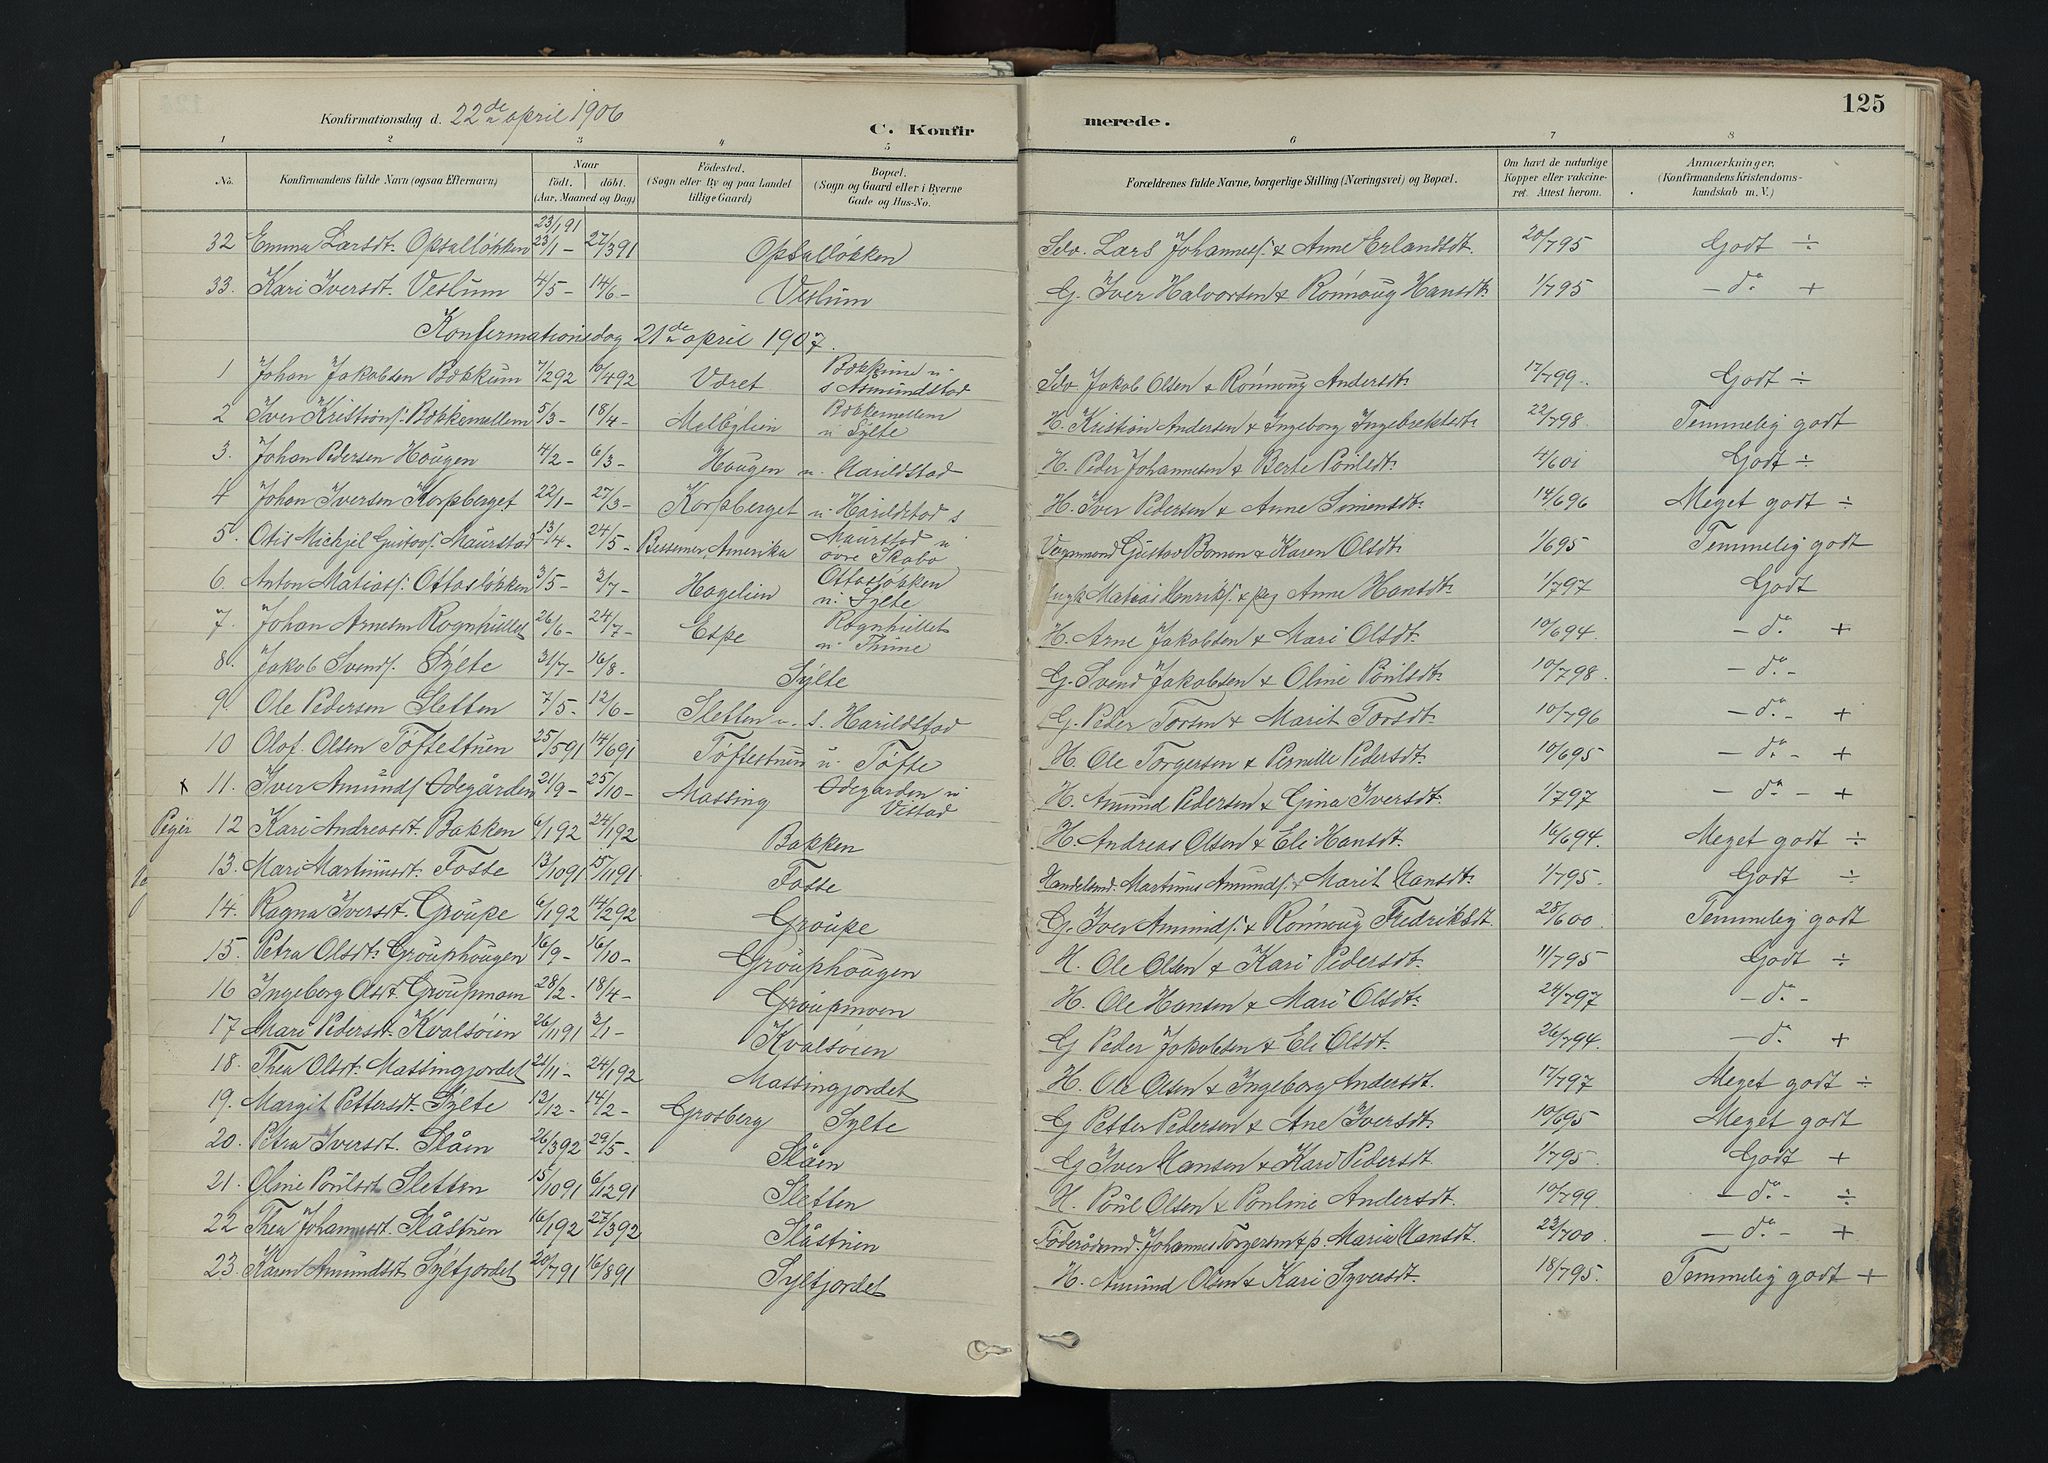 Konfirmationsdag d. 22de april 1906
C. Konfir
merede.
125
1 2 3 4 5 6 7 8
No. Konfirmandens fulde Navn (ogsaa Efternavn) Naar født. døbt. (Aar, Maaned og Dag) Fødested. (Sogn eller By og paa Landet tillige Gaard) Bopæl. (Sogn og Gaard eller i Byerne Gade og Hus-No. Forældrenes fulde Navne, borgerlige Stilling (Næringsvei) og Bopæl. Om havt de naturlige Kopper eller vakcineret. Attest herom. Anmærkninger. (Konfirmandens Kristendomskundskab m. V.)
23/1 91
32 Emma Larsdt. Opsalløkken 23/1 - 27/3 91 Opsalløkken Selv. Lars Johanness. & Anne Erlandsdt. 20/7 95 Godt ÷
33. Kari Iversdt. Veslum 4/5 - 14/6 - Veslum G. Iver Halvorsen & Rønnoug Hansdt. 1/7 95 - do +
Konfirmationsdag 21de april 1907.
1 Johan Jakobsen Bækkum 7/2 92 10/4 92 Været Bækkum u. s Asmundstad Selv Jakob Olsen & Rønnoug Andersdt. 17/7 99. Godt ÷
2 Iver Kristians. Bækkemellem 5/3 - 18/4 - Melbylien Bækkemellem u Sylte H. Kristian Andersen & Ingeborg Ingebrektsdt. 22/7 98. Temmelig godt
3. Johan Pedersen Hougen 4/2 - 6/3 - Hougen u. Harildstad H. Peder Johannesen & Berte Poulsdt. 4/6 01 Godt ÷
4 Johan Iversen Korpberget 22/1 - 27/3 - Korpberget u. Harildstad s H. Iver Pedersen & Anne Simensdt. 14/6 96 Meget godt ÷
5. Otis Michjel Gustavs. Maurstad 13/4 - 24/5 - Bessemer, Amerika Maurstad u øvre Skabo Gustav Boman & Karen Olsdt. 1/6 95 Temmelig godt
6. Anton Matiass. Ottosløkken 3/5 - 3/7 - Hagelien Ottosløkken u. Sylte Matias Henriks. & pig Anne Hansdt. 1/7 97 Godt
7. Johan Arnesen Rognhullet 26/6 - 24/7 - Espe Rognhullet u. Thune H. Arne Jakobsen & Mari Olsdt. 10/6 94. - do +
8. Jakob Svends. Sylte 31/7 - 16/8 - Sylte G. Svend Jakobsen & Oline Poulsdt. 10/7 98. - do -
9. Ole Pedersen Sletten 7/5 - 12/6 - Sletten u. s. Harildstad G. Peder Torsen & Marit Torsdt. 10/7 96 - do - +
10 Olof Olsen Tøftestuen 25/5 91 14/6 91 Tøftestuen u. Tøfte H. Ole Torgersen & Pernille Pedersdt. 10/6 95 - do - +
x 11. Iver Amunds. Ødegården 21/9 - 25/10 - Massing Ødegården u Vistad H. Amund Pedersen & Gina Iversdt. 1/7 97 - do - +
Piger 12 Kari Andreasdt. Bakken 6/1 92 24/1 92 Bakken H. Andreas Olsen & Eli Hansdt. 16/6 94. Meget godt ÷
13. Mari Martinusdt. Fosse 13/10 91 15/11 91 Fosse Handelsmd. Martinus Amunds. & Marit Hansdt. 1/7 95. Godt ÷
14. Ragna Iversdt. Groupe 6/1 92 14/2 92 Groupe G. Iver Amunds. & Rønnoug Fredriksdt. 28/6 00. Temmelig godt
15. Petra Olsdt. Grouphougen 16/9 - 16/10 - Grouphougen H. Ole Olsen & Kari Pedersdt. 11/7 95 Godt ÷
16 Ingeborg Olsdt. Groupmoen 28/2 - 18/4 - Groupmoen H. Ole Hansen & Mari Olsdt. 24/7 97 - do -
17 Mari Pedersdt. Kvalsøien 26/11 91 3/1 - Kvalsøien G Peder Jakobsen & Eli Olsdt. 26/7 94. - do +
18. Thea Olsdt. Massingjordet 21/11 - 24/1 92 Massingjordet H. Ole Olsen & Ingeborg Andersdt. 17/7 97 Meget godt ÷
19. Margit Pettersdt. Sylte 13/12 - 14/2 - Grosberg Sylte G Petter Pedersen & Ane Iversdt. 10/6 95 Meget godt
20. Petra Iversdt. Slåen 26/3 92 29/5 - Slåen G. Iver Hansen & Kari Pedersdt 1/7 95. Godt +
21. Oline Poulsdt. Sletten 15/10 91 6/12 91 Sletten H. Poul Olsen & Pouline Andersdt. 10/7 99. - do - ÷
22 Thea Johannesdt. Slåstuen 16/1 92 27/3 92 Slåstuen Føderådsmd. Johannes Torgersen & p. Maria Hansdt. 23/7 00. - do - +
23. Karen Amundsdt. Syltjordet 20/7 91 16/8 91 Syltjordet H. Amund Olsen & Kari Syversdt. 18/7 95. Temmelig godt +